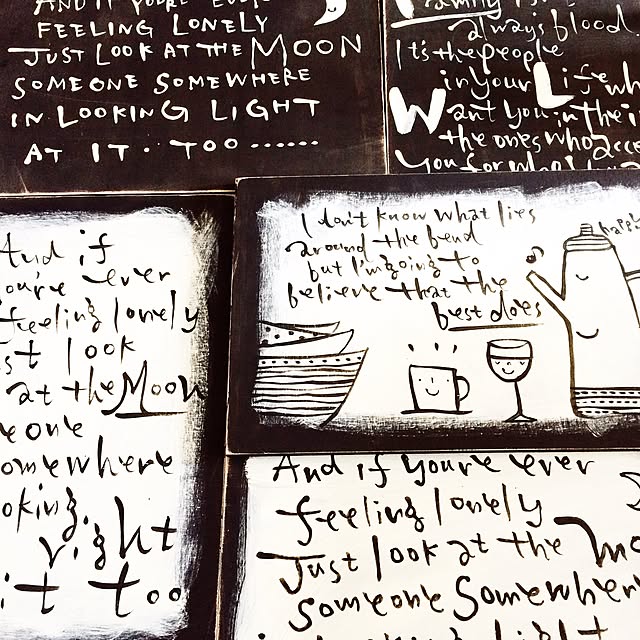 AND IF YOU'RE EVER
FEELING LONELY
JUST LOOK AT THE MOON
SOMEONE SOMEWHERE
IN LOOKING LIGHT
AT IT . TOO ......
Family
always blood.
It's the people
in your Life wh
Want you in the
the ones who acce
you for who
And if
you're ever
feeling lonely
st look
at the Moon
eone
omewhere
oking
right
it too
I don't know what lies
around the bend
but I'm going to
believe that the
best does
happ
And if you're ever
feeling lonely
Just look at the mo
someone Somewher